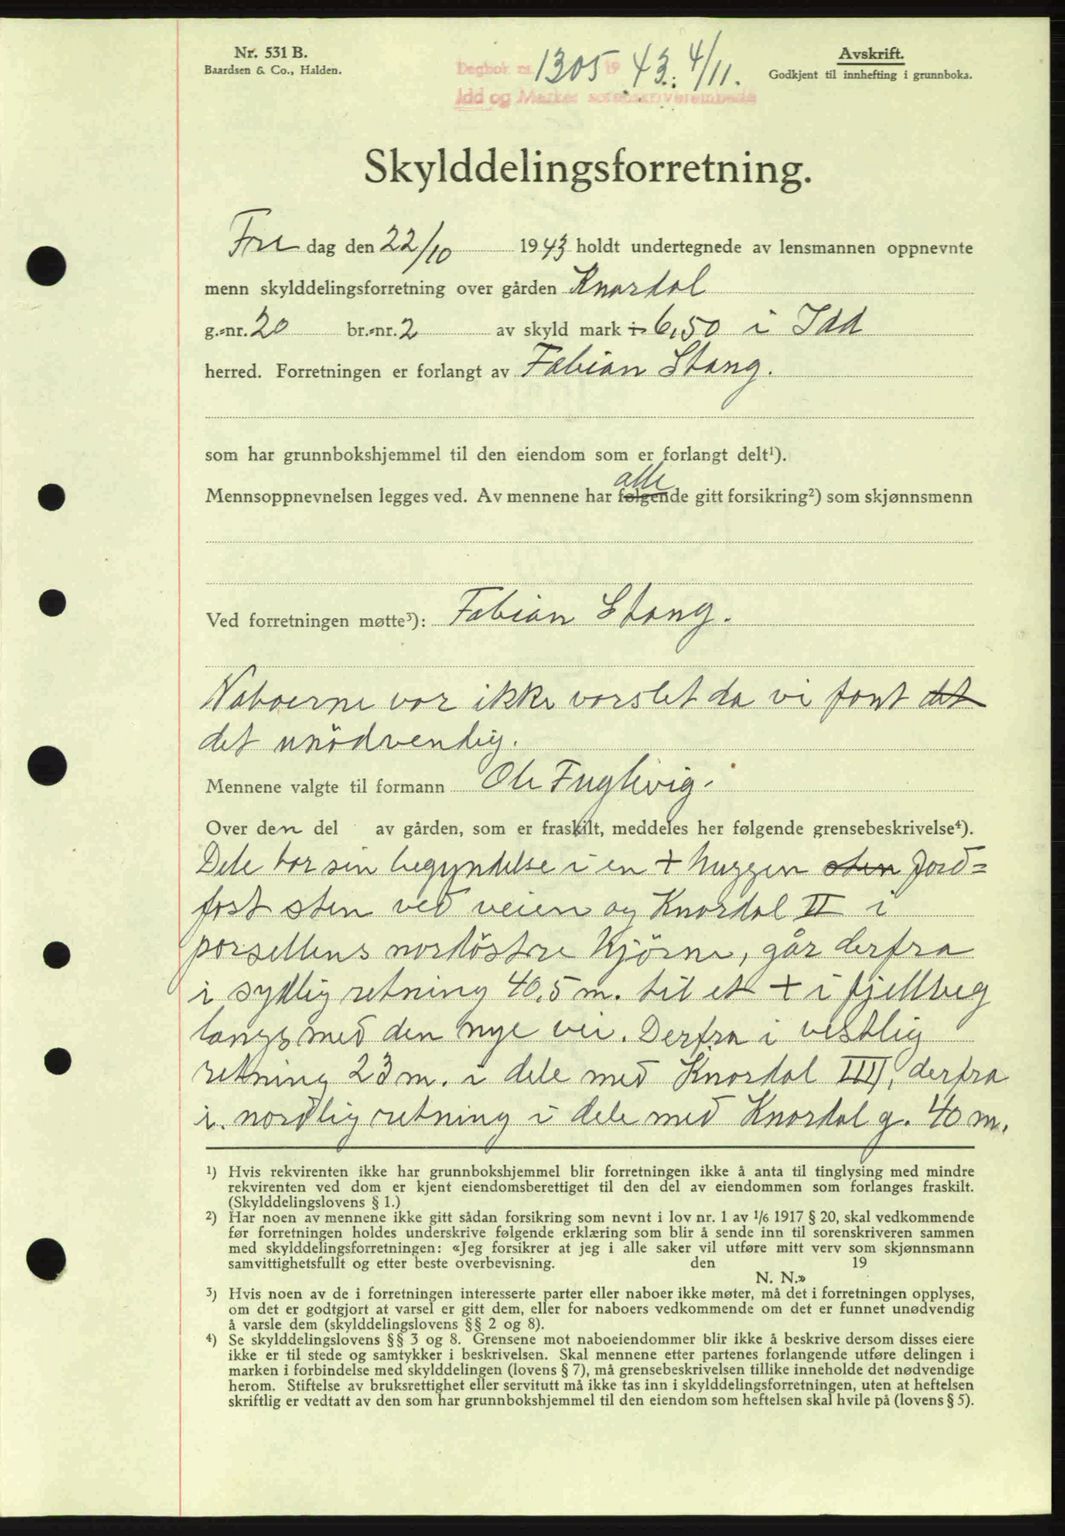 Nr. 531 B.
Baardsen & Co., Halden.
Dagbok nr. 1305 19 43. 4/11.
Idd og Marker sorenskriverembede
Avskrift.
Godkjent til innhefting i grunnboka.
Skylddelingsforretning.
Fre dag den 22/10 1943 holdt undertegnede av lensmannen oppnevnte
menn skylddelingsforretning over gården Knardal
g.-nr. 20 br.-nr. 2 av skyld mark 6,50 i Idd
herred. Forretningen er forlangt av Fabian Stang.
som har grunnbokshjemmel til den eiendom som er forlangt delt¹).
alle
Mennsoppnevnelsen legges ved. Av mennene har følgende gitt forsikring²) som skjønnsmenn
Ved forretningen møtte³): Fabian Stang.
Naboerne var ikke varslet da vi fant det
det unödvendig.
Mennene valgte til formann Ole Fuglevig.
Over den del av gården, som er fraskilt, meddeles her følgende grensebeskrivelse⁴).
Dele har sin begyndelse i en + huggen sten jord=
fast sten ved veien og Knardal II i
parsellens nordöstre hjörne, går derfra
i sydlig retning 40,5 m. til et + i fjellveg
langs med den nye vei. Derfra i vestlig
retning 23 m. i dele med Knardal III, derfra
i nordlig retning i dele med Knardal g. 40 m.
¹) Hvis rekvirenten ikke har grunnbokshjemmel blir forretningen ikke å anta til tinglysing med mindre
rekvirenten ved dom er kjent eiendomsberettiget til den del av eiendommen som forlanges fraskilt.
(Skylddelingslovens § 1.)
²) Har noen av mennene ikke gitt sådan forsikring som nevnt i lov nr. 1 av 1/6 1917 § 20, skal vedkommende
før forretningen holdes underskrive følgende erklæring som blir å sende inn til sorenskriveren sammen
med skylddelingsforretningen: «Jeg forsikrer at jeg i alle saker vil utføre mitt verv som skjønnsmann
samvittighetsfullt og etter beste overbevisning. den 19
N. N.»
³) Hvis noen av de i forretningen interesserte parter eller naboer ikke møter, må det i forretningen opplyses,
om det er godtgjort at varsel er gitt dem, eller for naboers vedkommende om det er funnet unødvendig
å varsle dem (skylddelingslovens §§ 2 og 8).
⁴) Se skylddelingslovens §§ 3 og 8. Grensene mot naboeiendommer blir ikke å beskrive dersom disses eiere
ikke er til stede og samtykker i beskrivelsen. Skal mennene etter partenes forlangende utføre delingen i
marken i forbindelse med skylddelingen (lovens § 7), må grensebeskrivelsen tillike inneholde det nødvendige
herom. Stiftelse av bruksrettighet eller servitutt må ikke tas inn i skylddelingsforretningen, uten at heftelsen
skriftlig er vedtatt av den som har grunnbokshjemmel til den eiendom som heftelsen skal hvile på (lovens § 5).